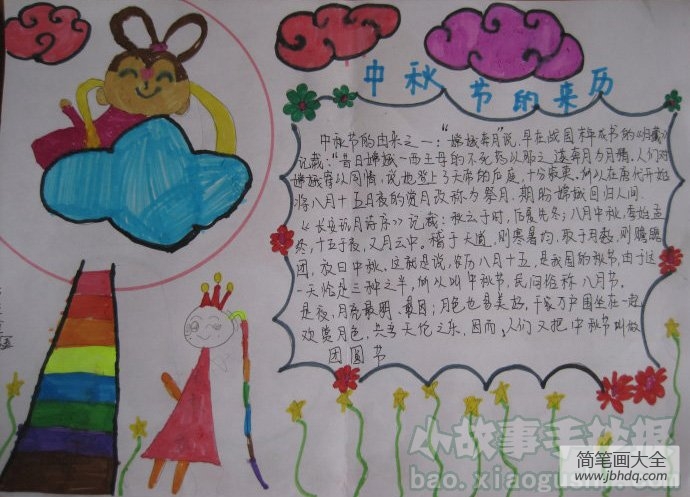 中秋节的来历
中秋节的由来之一："嫦娥奔月"说,早在战国末年成书的《归藏》
记载："昔日嫦娥以西王母的不死药以服之,遂奔月为月精。人们对
嫦娥寄以同情,说她登上了天帝的后庭,十分寂寞。所以在唐代开始
将八月十五月夜的赏月改称为祭月,期盼嫦娥回归人间。
《长安玩月诗序》记载：秋之于时,后夏先冬;八月中秋,季始孟
冬,十五于夜,又月云中。稽于天道,则寒暑均,取于月数,则蟾魄
团,故曰中秋。这就是说,农历八月十五,是我国的秋节,由于这
一天恰是三秋之半,所以叫中秋节,民间俗称八月节。
是夜,月亮最明、最圆;月色也易美好,千家万户围坐在一起
欢赏月色,共享天伦之乐,因而,人们又把中秋节叫做
团圆节
小故事手抄报
bao.xiaogushi
简笔画大全
www.jbhdq.com